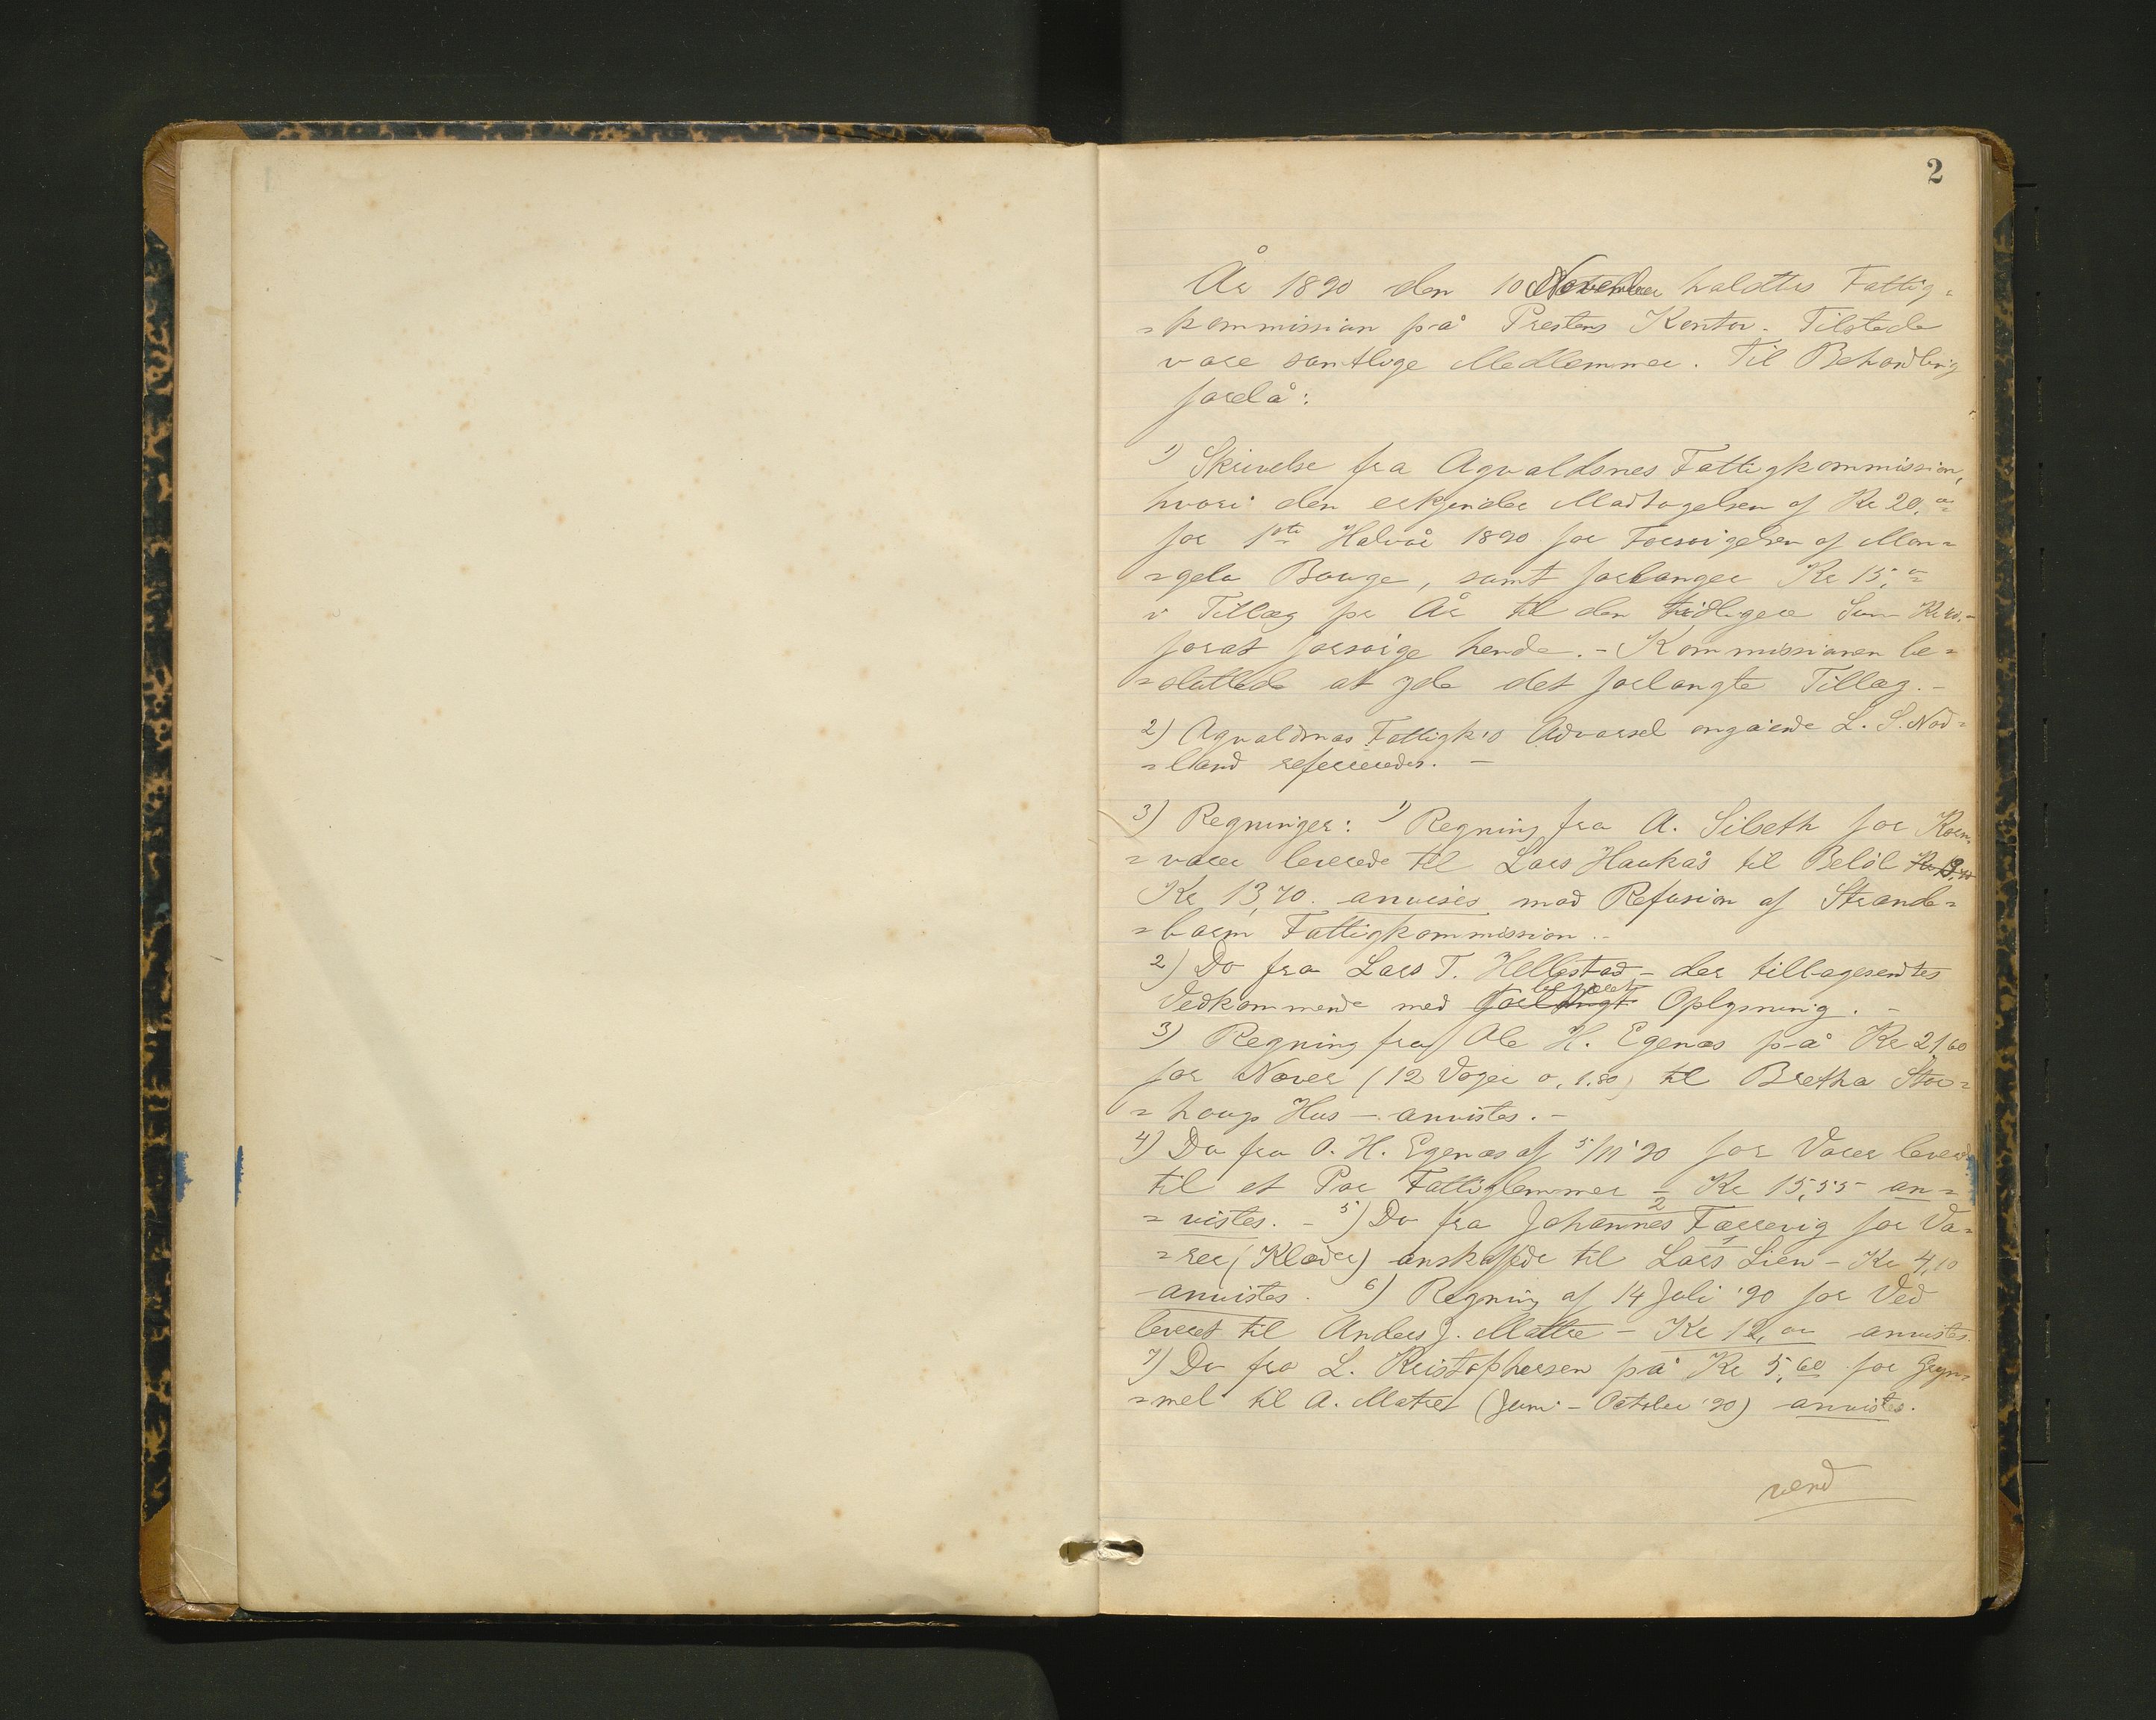 2
År 1890 den 10 November holdtes Fattig=
=kommission på Prestens Kontor. Tilstede
vare samtlige Medlemmer. Til Behandling
forelå:
1) Skrivelse fra Agvaldsnes Fattigkommission,
hvori den erkjender Modtagelsen af Kr 20,
for 1ste Halvår 1890 for Forsørgelsen af Mon=
=gela Bauge, samt forlanger Kr 15,
i Tillæg pr År til den tidligere Sum Kr 40,-
forat forsørge hende. - Kommissionen be=
=sluttede at yde det forlangte Tillæg. -
2) Agvaldsnes Fattigk's Advarsel angående L. S. Nod=
=land refereredes. -
3) Regninger: 1) Regning fra A. Silseth for Korn=
=varer leverede til Lars Haukås til Beløb
Kr 13,70. anvises mod Refusion af Strande=
=barm Fattigkommission. -
2) Do fra Lars T. Hellestad - der tilbagesendtes
Vedkommende med forlangt begjært Oplysning. -
3) Regning fra Ole H. Egenæs på Kr 21,60
for Næver (12 Voger a 1.80) til Bretha Stor=
=haugs Hus - anvistes. -
4) Do fra O. H. Egenæs af 5/11 '90 for Varer levered
til et Par Fattiglemmer - Kr 15,55 an=
=vistes. - 5) Do fra Johannes Færrevig for Va=
=rer (Klæder) anskaffede til Lars Lien - Kr 4,10
anvistes. 6) Regning af 14 Juli '90 for Ved
leveret til Anders J. Mattre - Kr 12, anvistes.
7) Do fra L. Kristophersen på Kr 5,60 for Gryn=
=mel til A. Matre (Juni - October '90) anvistes.
vend